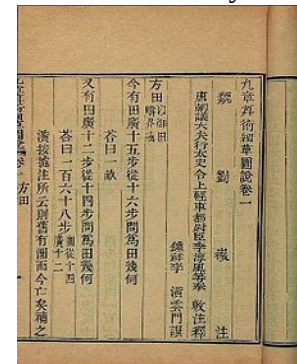 九章算術細草圖說卷一
魏 劉 徽 注
唐朝議大夫行太史令上輕車都尉臣李淳風等奉 敕注釋
鍾祥李 潢雲門譔
方田以御田疇界域
今有田廣十五步從十六步問爲田幾何
荅曰一畝
又有田廣十二步從十四步問爲田幾何
荅曰一百六十八步圖從十四廣十二
潢按據注所云則舊有圖而今亡矣補之
卷一 方田